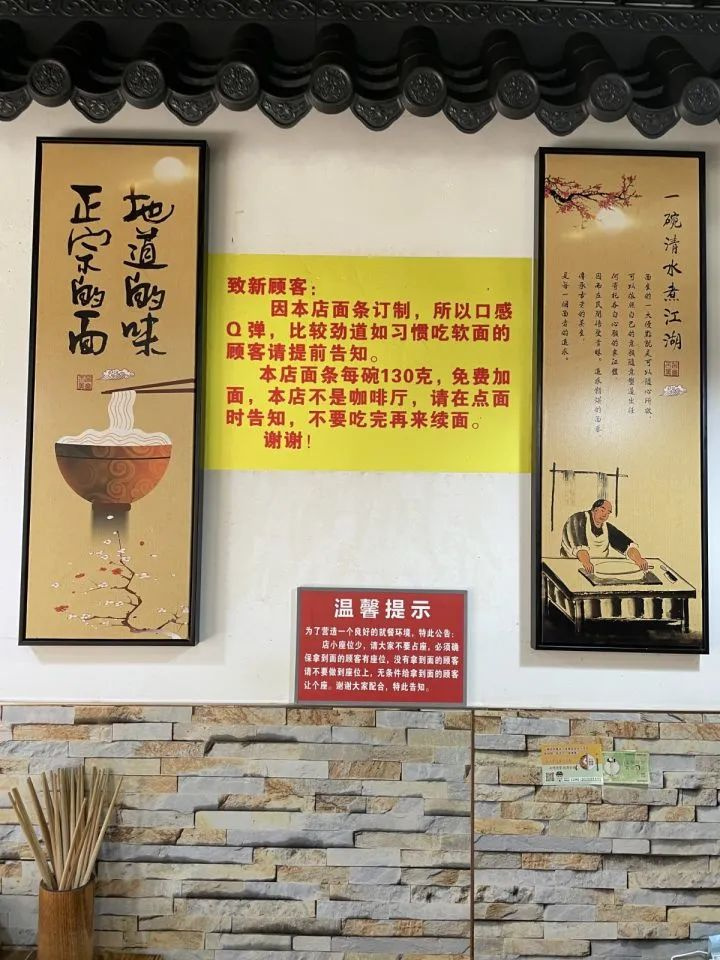 地道的味
正宗的面
致新顾客：
因本店面条订制，所以口感
Q弹，比较劲道如习惯吃软面的
顾客请提前告知。
本店面条每碗130克，免费加
面，本店不是咖啡厅，请在点面
时告知，不要吃完再来续面。
谢谢！
一碗清水煮江湖
面里的一大优点就是可以随心所欲，
可以依照自己的意愿随意塑造出任
是每一个面者的追求。
温馨提示
为了营造一个良好的就餐环境，特此公告：
店小座位少，请大家不要占座，必须确
保拿到面的顾客有座位，没有拿到面的顾客
请不要做到座位上，无条件给拿到面的顾客
让个座。谢谢大家配合，特此告知。